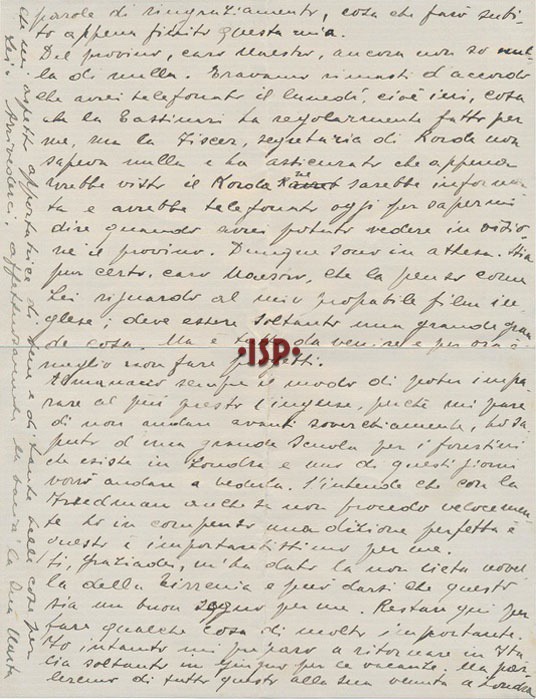 parole di ringraziamento, cosa che farò subi-
to appena finito questa mia.
Del provino, caro Maestro, ancora non so nul-
la di nulla. Eravamo rimasti d'accordo
che avrei telefonato il lunedì, cioè ieri, cosa
che la Eastman ha regolarmente fatto per
me, ma la Fiscer, segretaria di Korda non
sapeva nulla e ha assicurato che appena
avrebbe visto il Korda ne sarebbe informa-
ta e avrebbe telefonato oggi per sapermi
dire quando avrei potuto vedere in visio-
ne il provino. Dunque sono in attesa. Stia
pur certo, caro Maestro, che la penso come
Lei riguardo al mio probabile film in-
glese; deve essere soltanto una grande gran-
de cosa. Ma è tutto da venire e per ora è
meglio non fare progetti.
ISP
Almanacco sempre il modo di poter impa-
rare al più presto l'inglese, perché mi pare
di non andare avanti soverchiamente, ho sa-
puto d'una grande scuola per i forestieri
che esiste in Londra e uno di questi giorni
vorrò andare a vederla. S'intende che con la
Friedman anche se non procedo velocemen-
te ho in compenso una dizione perfetta e
questo è importantissimo per me.
Sì, Graziadei, m'ha dato la non lieta novel-
la della Tirrenia e può darsi che questo
sia un buon segno per me. Restar qui per
fare qualche cosa di molto importante.
Io intanto mi preparo a ritornare in Ita-
lia soltanto in giugno per le vacanze. Ma par-
leremo di tutto questo alla sua venuta a Londra
che mi aspetto apportatrice di bene e di tante belle cose per
Lei. Arrivederci, affettuosamente la bacia la Sua Marta